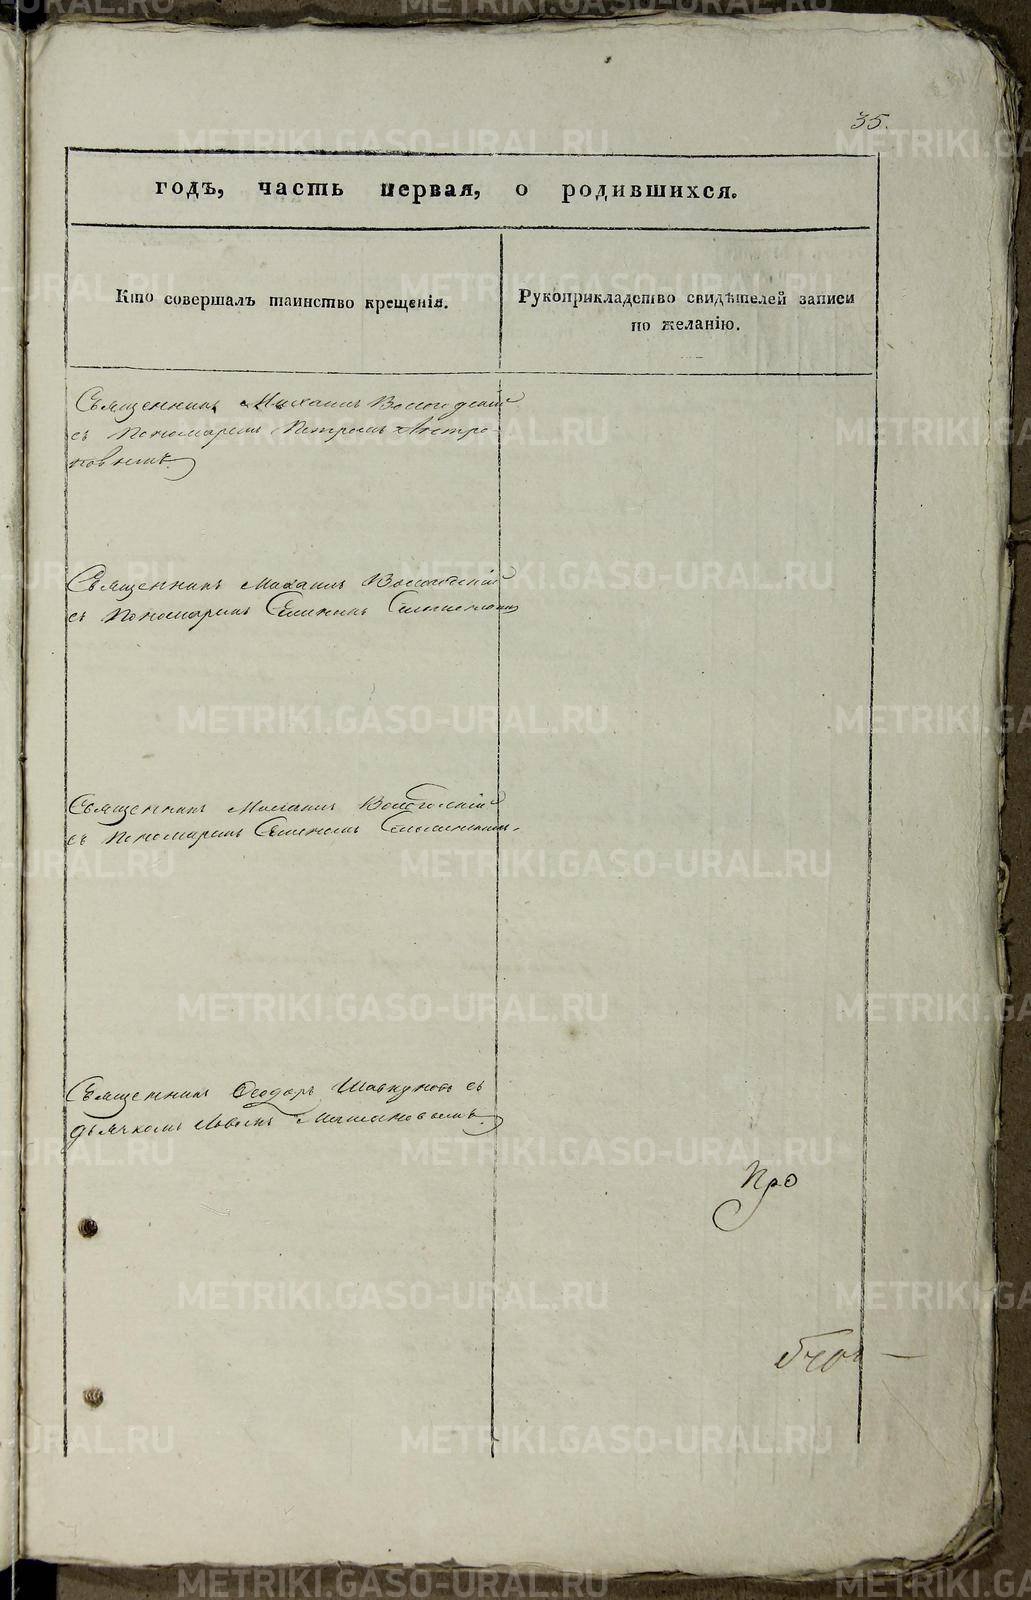 35.
годъ, часть первая, о родившихся.
Кто совершалъ таинство крещенія.
Рукоприкладство свидѣтелей записи
по желанію.
Священникъ Михаилъ Вологодскій
съ Пономаремъ Петромъ
Священникъ Михаилъ Вологодскій
съ Пономаремъ Семеномъ
Священникъ Михаилъ Вологодскій
съ Пономаремъ Семеномъ
Священникъ Ѳеодоръ Шавкуновъ съ
дьячкомъ
Про
METRIKI.GASO-URAL.RU